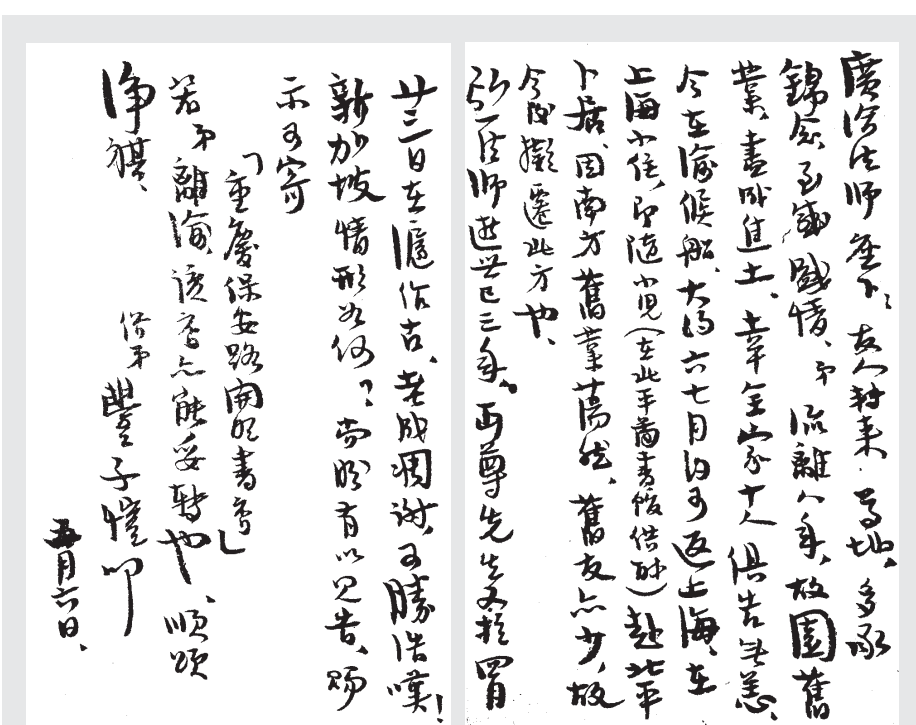 廣洽法師座下:友人轉來尊札,多承
錦念至感盛情、弟流離八年,故園舊
業,盡成焦土、幸全家十人俱告無恙、
今在渝候船、大約六七月份可返上海、在
上海小住,即隨小兒(在北平圖書館供職)赴北平
卜居、因南方舊業蕩然、舊友亦少,故
今後擬遷北方也、
弘一法師逝世已三年。丏尊先生又於四月
廿三日在滬作古、老成凋謝,可勝浩嘆!
新加坡情形如何?尚盼有以見告、賜
示可寄
「重慶保安路開明書店」
若弟離渝,該店亦能妥轉也、順頌
淨祺、
俗弟豐子愷叩
五月六日、